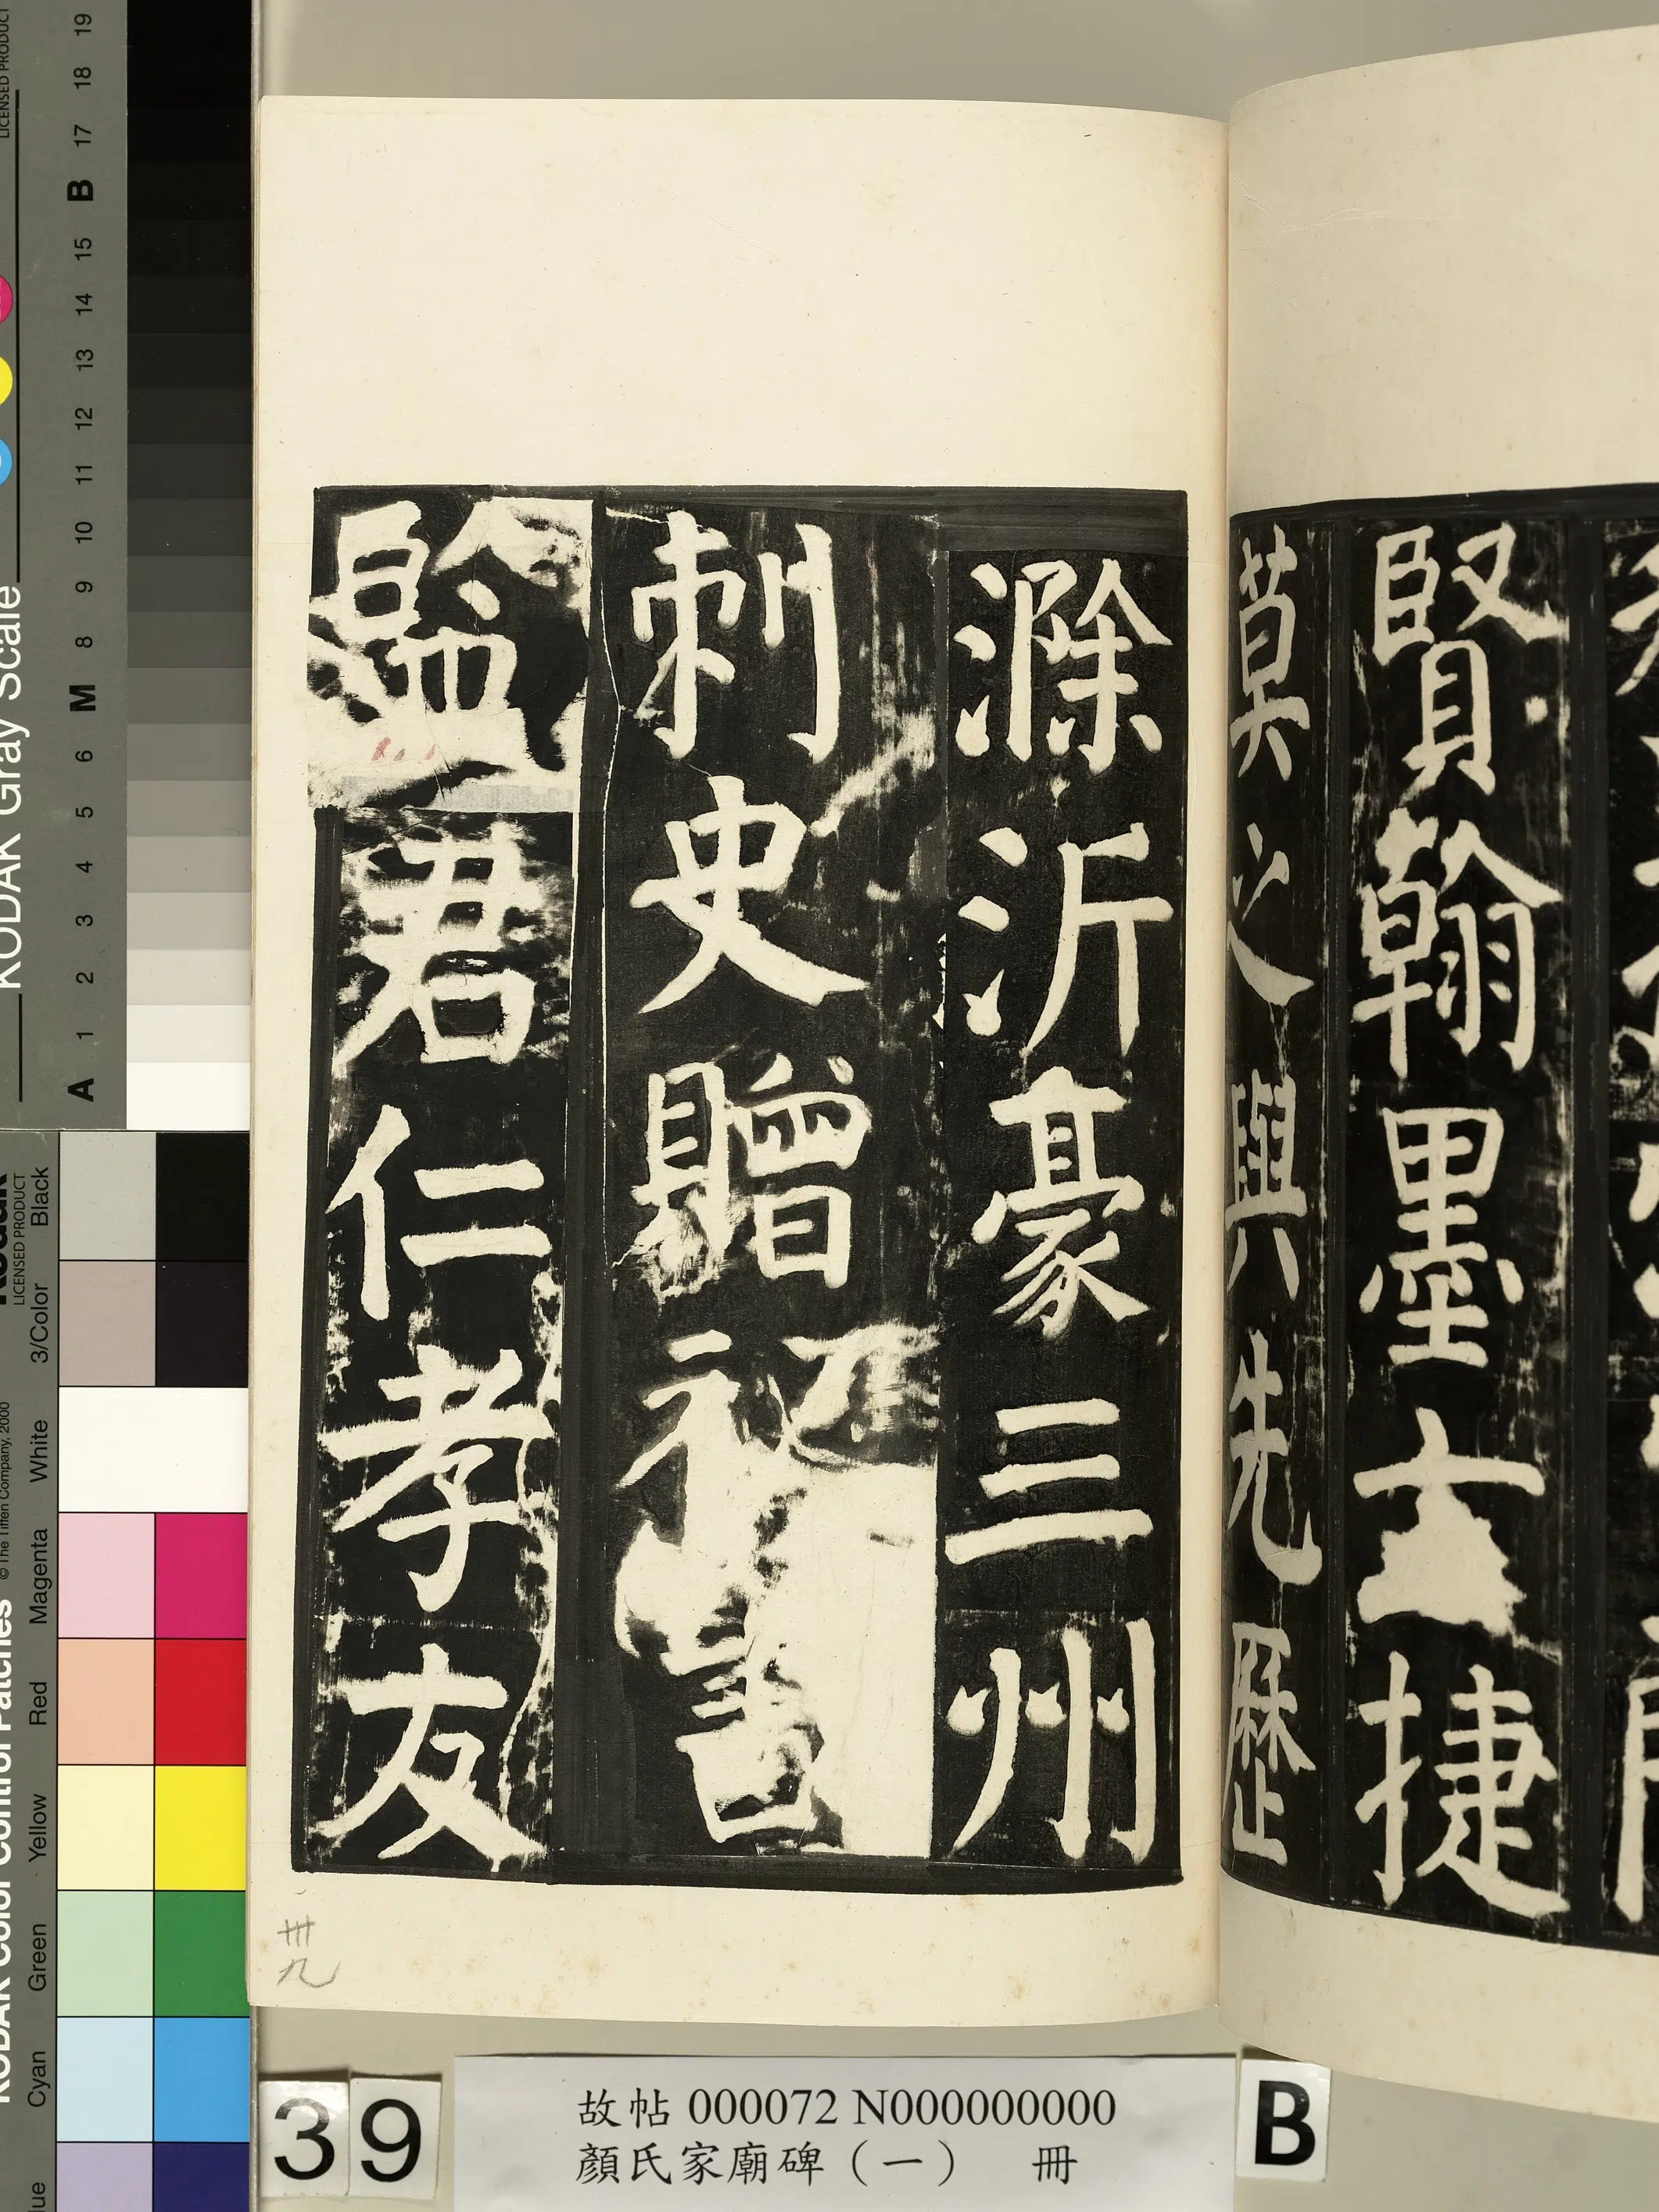 賢翰墨
捷
莫之與先歷
滁沂豪三州
刺史贈秘書
監君仁孝友
卅九
39
故帖 000072 N000000000
顏氏家廟碑（一） 冊
B
KODAK Gray Scale
LICENSED PRODUCT
A 1 2 3 4 5 6 M 8 9 10 11 12 13 14 15 B 17 18 19
KODAK Color Control Patches
© The Tiffen Company, 2000
Kodak
LICENSED PRODUCT
Cyan Green Yellow Red Magenta White 3/Color Black